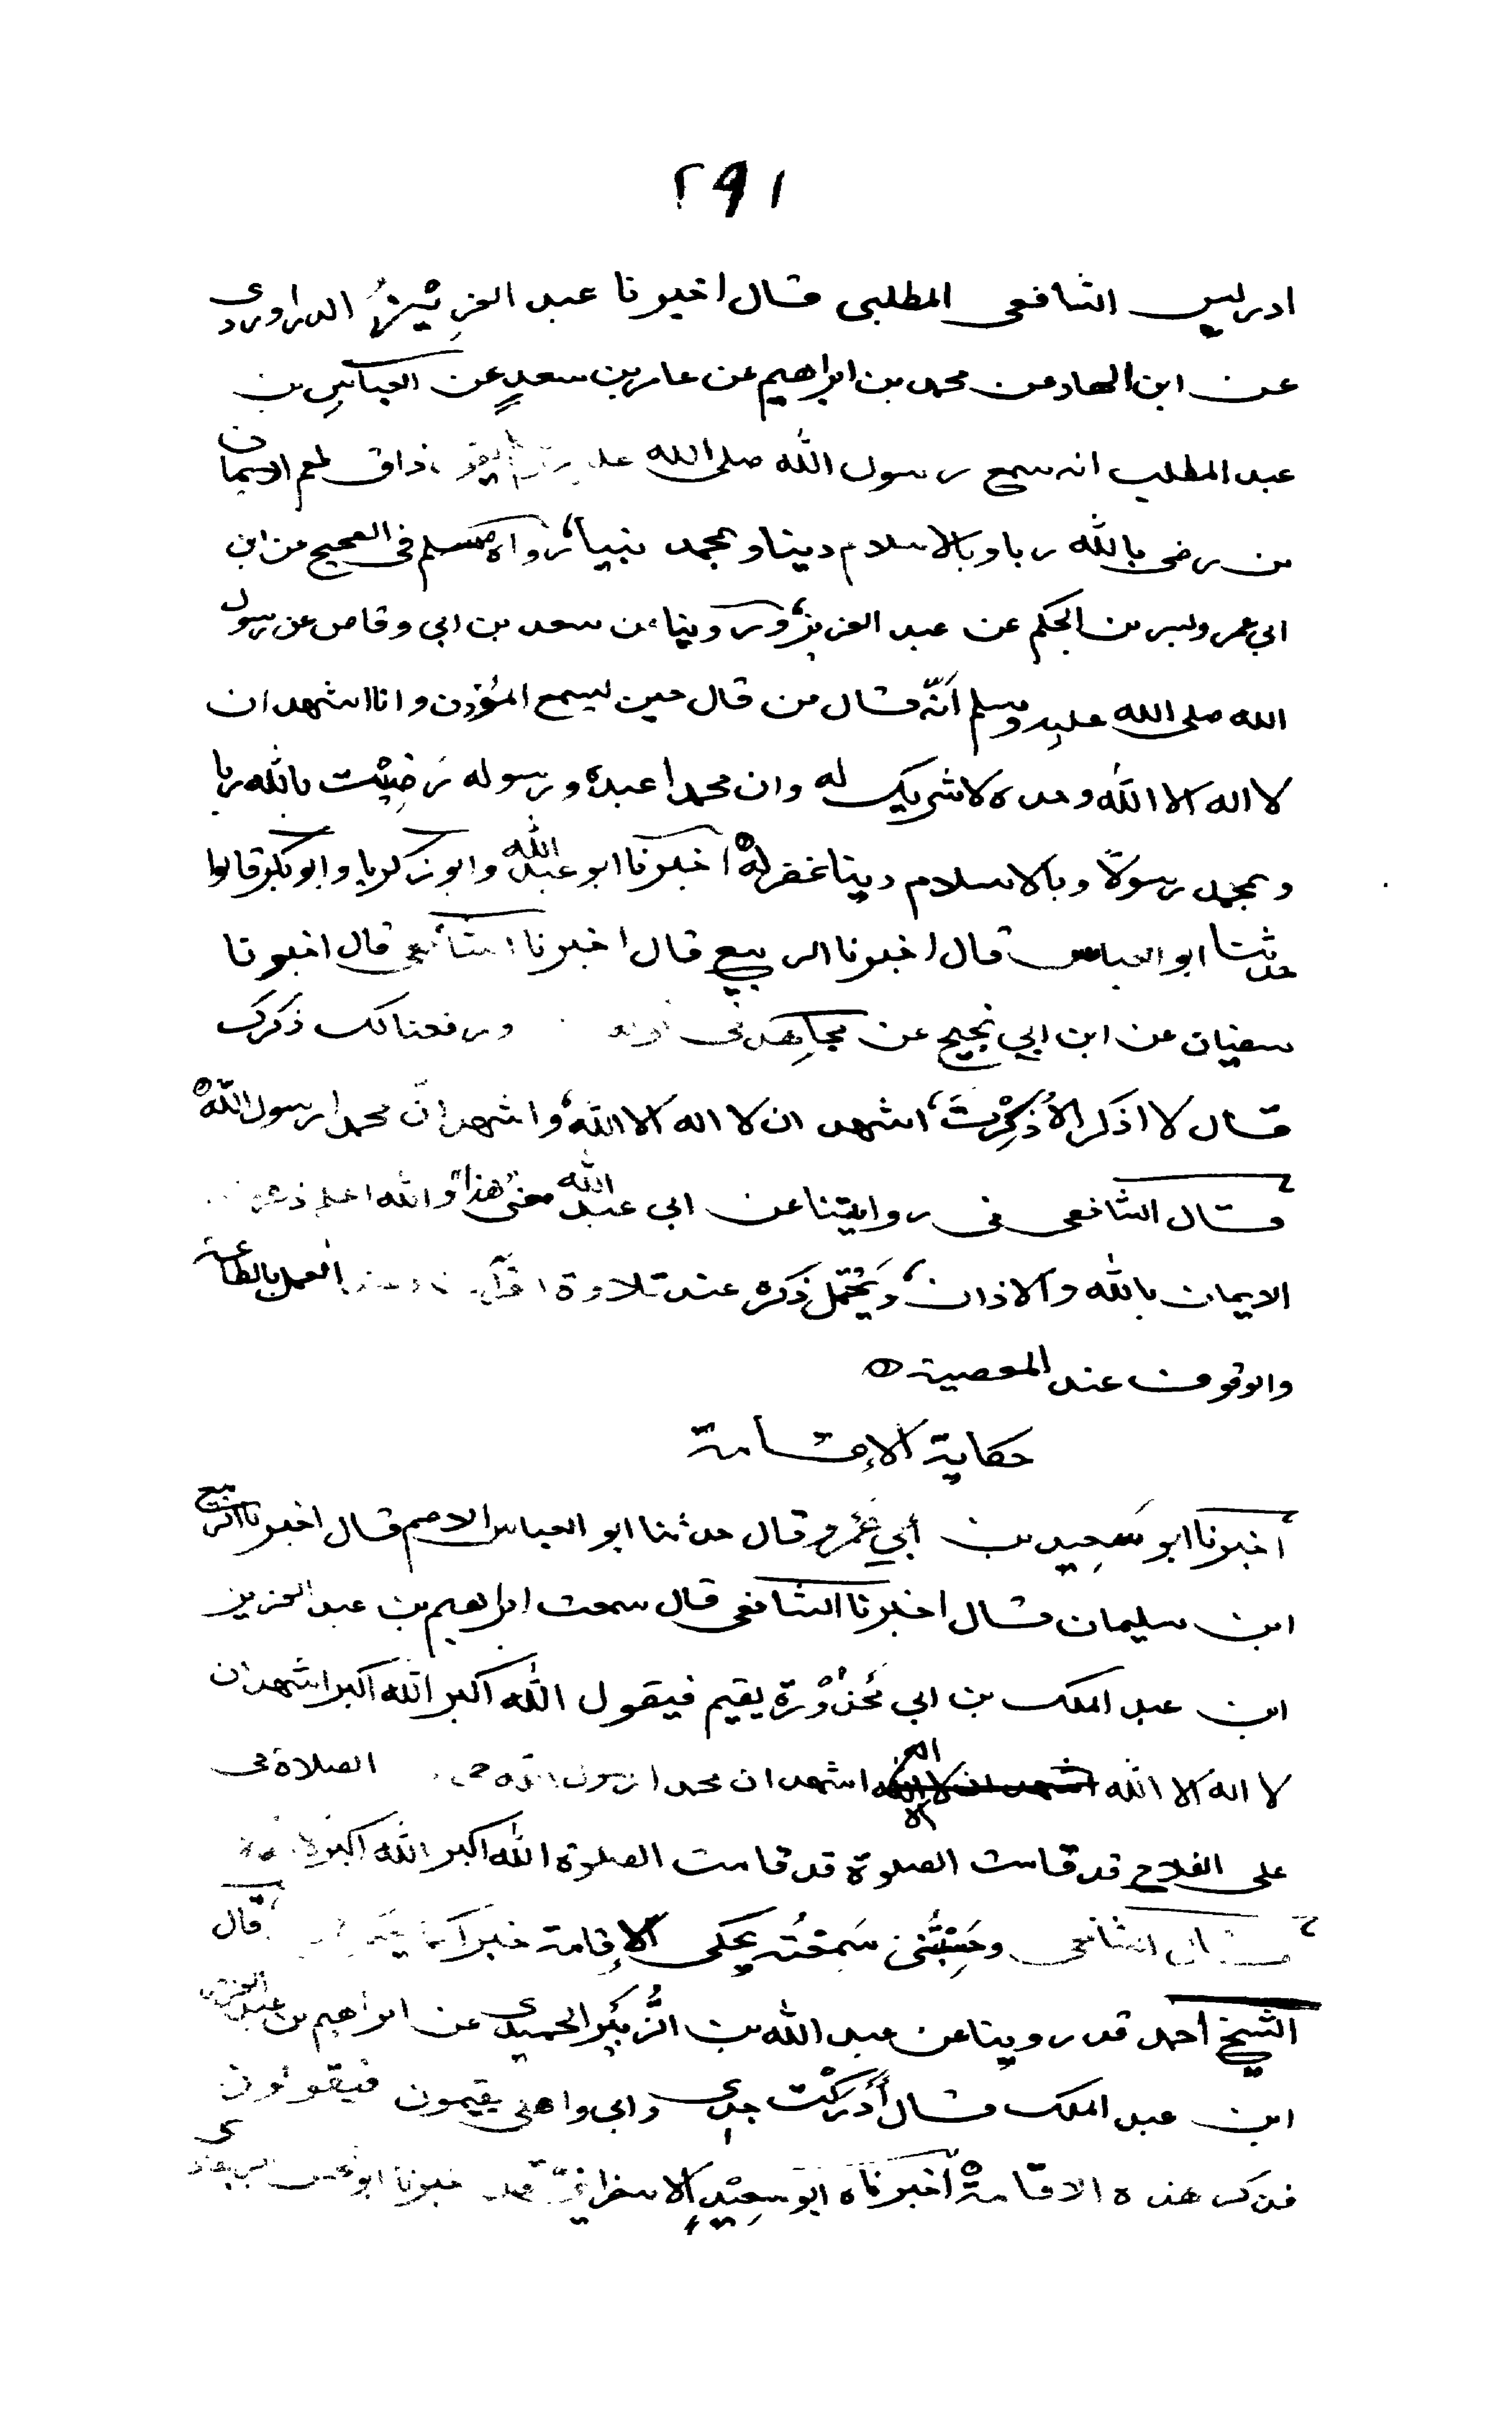 ٢٩١
ادريس الشافعى المطلبى قال اخبرنا عبد العزِيْزُ الدراوردى
عن ابن الهاد عن محمد بن ابراهيم عن عامر بن سعدٍ عن العباسِ بن
عبد المطلب انه سمع رسول الله صلى الله عليه يقو ذاق طعم الايمان
من رضى بالله ربا وبالاسلام دينا وبمحمد نبيا، رواه مسلم فى الصحيح عن ابن
ابي عمر وبشر بن الحكم عن عبد العزيز، وروينا عن سعد بن ابي وقاص عن رسول
الله صلى الله عليه وسلم أنّه قال من قال حين يسمع المؤذن وانا اشهد ان
لا اله الا الله وحده لا شريك له وان محمدا عبده ورسوله رَضِيْت بالله ربا
وبمحمد رسولاً وبالاسلام دينا غفر له ٥ اخبرنا ابو عبد الله وابو زكريا وابو بكر قالوا
حدثنا ابو العباس قال اخبرنا الربيع قال اخبرنا الشافعى قال اخبرنا
سفيان عن ابن ابي نجيح عن مجاهد فى قوله ورفعنا لك ذكرك
قال لا اذكر الا ذُكِرْتَ، اشهد ان لا اله الا الله، واشهد انّ محمدا رسول الله ٥
قال الشافعى فى روايتنا عن ابى عبد الله معنى هذا والله اعلم ذكره
الايمان بالله والاذان، ويَحْتمل ذكره عند تلاوة القرآن العمل بالطاعة
والوقوف عند المعصية ٥
حكاية الإقامة
أخبرنا ابو سَعِيد بن أبي عَمْرو قال حدثنا ابو العباس الاصم قال اخبرنا الربيع
ابن سليمان قال اخبرنا الشافعى قال سمعت ابراهيم بن عبد العزيز
ابن عبد الملك بن ابي مَحْذُوْرة يقيم فيقول الله اكبر الله اكبر اشهد ان
لا اله الا الله اشهد ان لا اله الا الله اشهد ان محمدا رسول الله حى الصلاة حى
على الفلاح قد قامت الصلوة قد قامت الصلوة الله اكبر الله اكبر لا
قال الشافعى وحَسِبْتُنى سَمعْتُه يحكى الإقامة خبرا كما قال
الشيخ احمد قد روينا عن عبد الله بن الزُّبَيْر الحميدى عن ابراهيم بن عبد العزيز
ابن عبد الملك قال أدْرَكْت جدى وابى واهلى يقيمون فيقولون
فذكر هذه الاقامة ٥ أخبرناه ابو سعيْدٍ الاسفراني